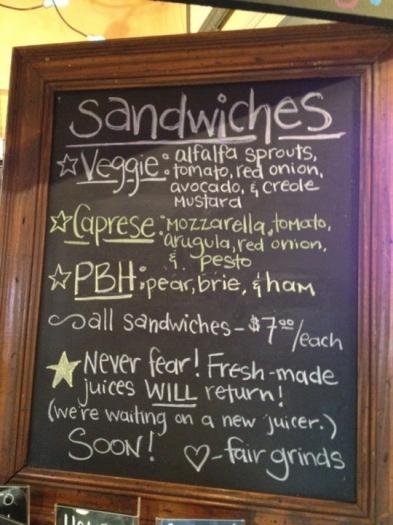 Sandwiches
☆Veggie: alfalfa sprouts,
tomato, red onion,
avocado, & creole
mustard
☆Caprese: mozzarella, tomato,
arugula, red onion,
& pesto
☆PBH: pear, brie, & ham
~all sandwiches - $7.00/each
★Never fear! Fresh-made
juices WILL return!
(we're waiting on a new juicer.)
Soon! ♡-fair grinds